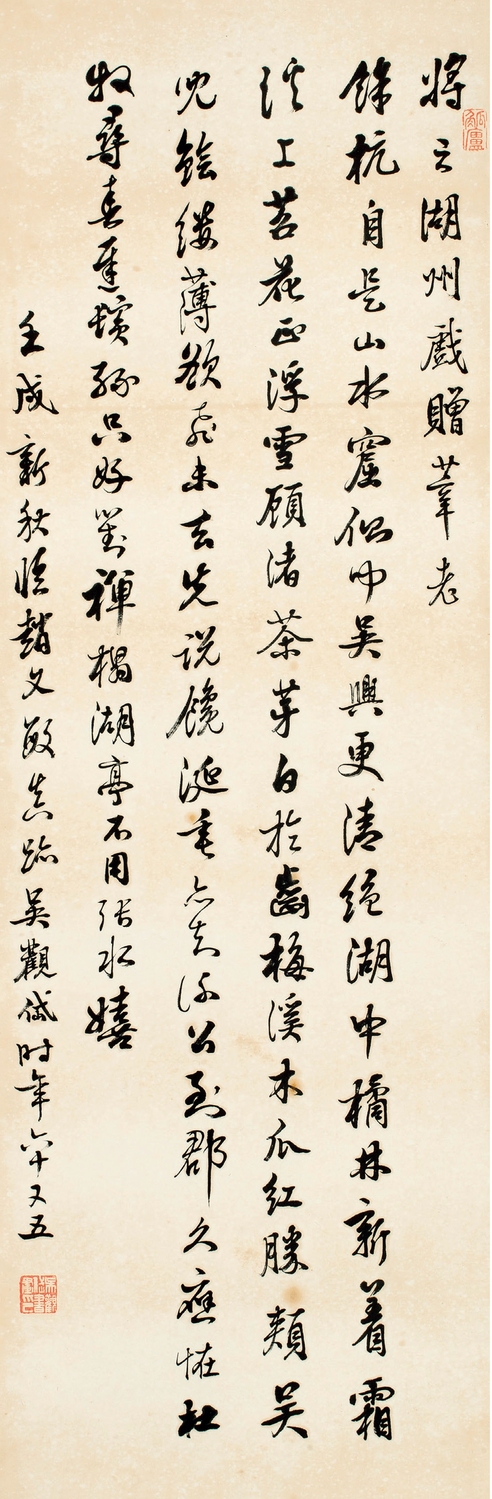 將之湖州戲贈莘老
餘杭自是山水窟側聞吳興更清絕湖中橘林新着霜
溪上苕花正浮雪顧渚茶芽白於齒梅溪木瓜紅勝頰吳
兒鱠縷薄欲飛未去先説饞涎垂亦知謝公到郡久應怪杜
牧尋春遲鬢絲只好對禪榻湖亭不用張水嬉
壬戌新秋臨趙文敏真跡吳觀岱時年六十又五
觚廬